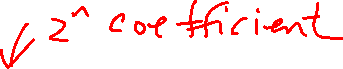 2^n coefficient